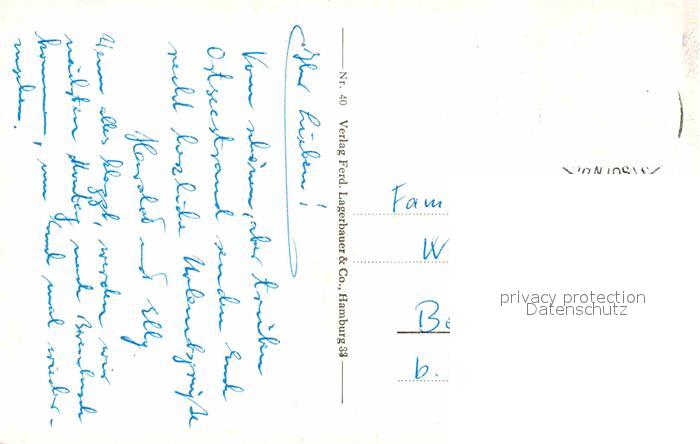 Ihr Lieben!
Vom schönen, aber trüben
Ostseestrand senden Euch
recht herzliche Urlaubsgrüße
Harald und Elly.
Wenn alles klappt, werden wir
nächsten Montag nach
kommen, um Euch mal wieder-
zusehen.
Nr. 40 Verlag Ferd. Lagerbauer & Co., Hamburg
Fam
W
Be
b.
privacy protection
Datenschutz